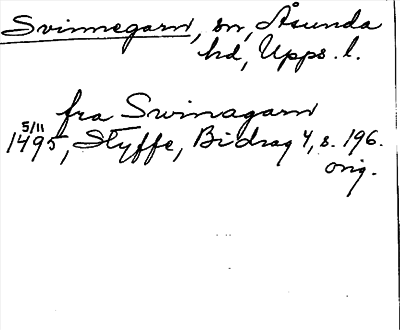 Svinnegarn, sn, Åsunda
hd, Upps. l.
fra Swinagarn
5/11
1495, Styffe, Bidrag 4, s. 196.
orig.